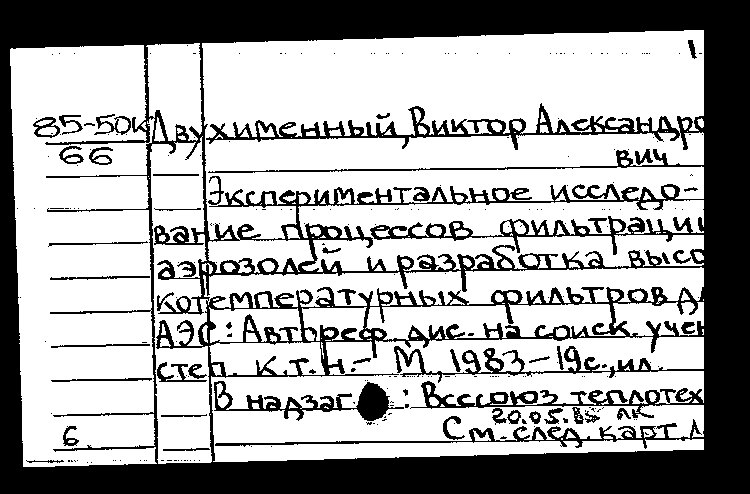 1
85-50к Двухименный, Виктор Александро
66 вич
Экспериментальное исследо-
вание процессов фильтрации
аэрозолей и разработка высо
котемпературных фильтров д
АЭС: Автореф. дис. на соиск. учен
степ. к.т.н. - М, 1983 - 19с., ил.
В надзаг : Всесоюз. теплотех
20.05.85 ЛК
6. См. след. карт.